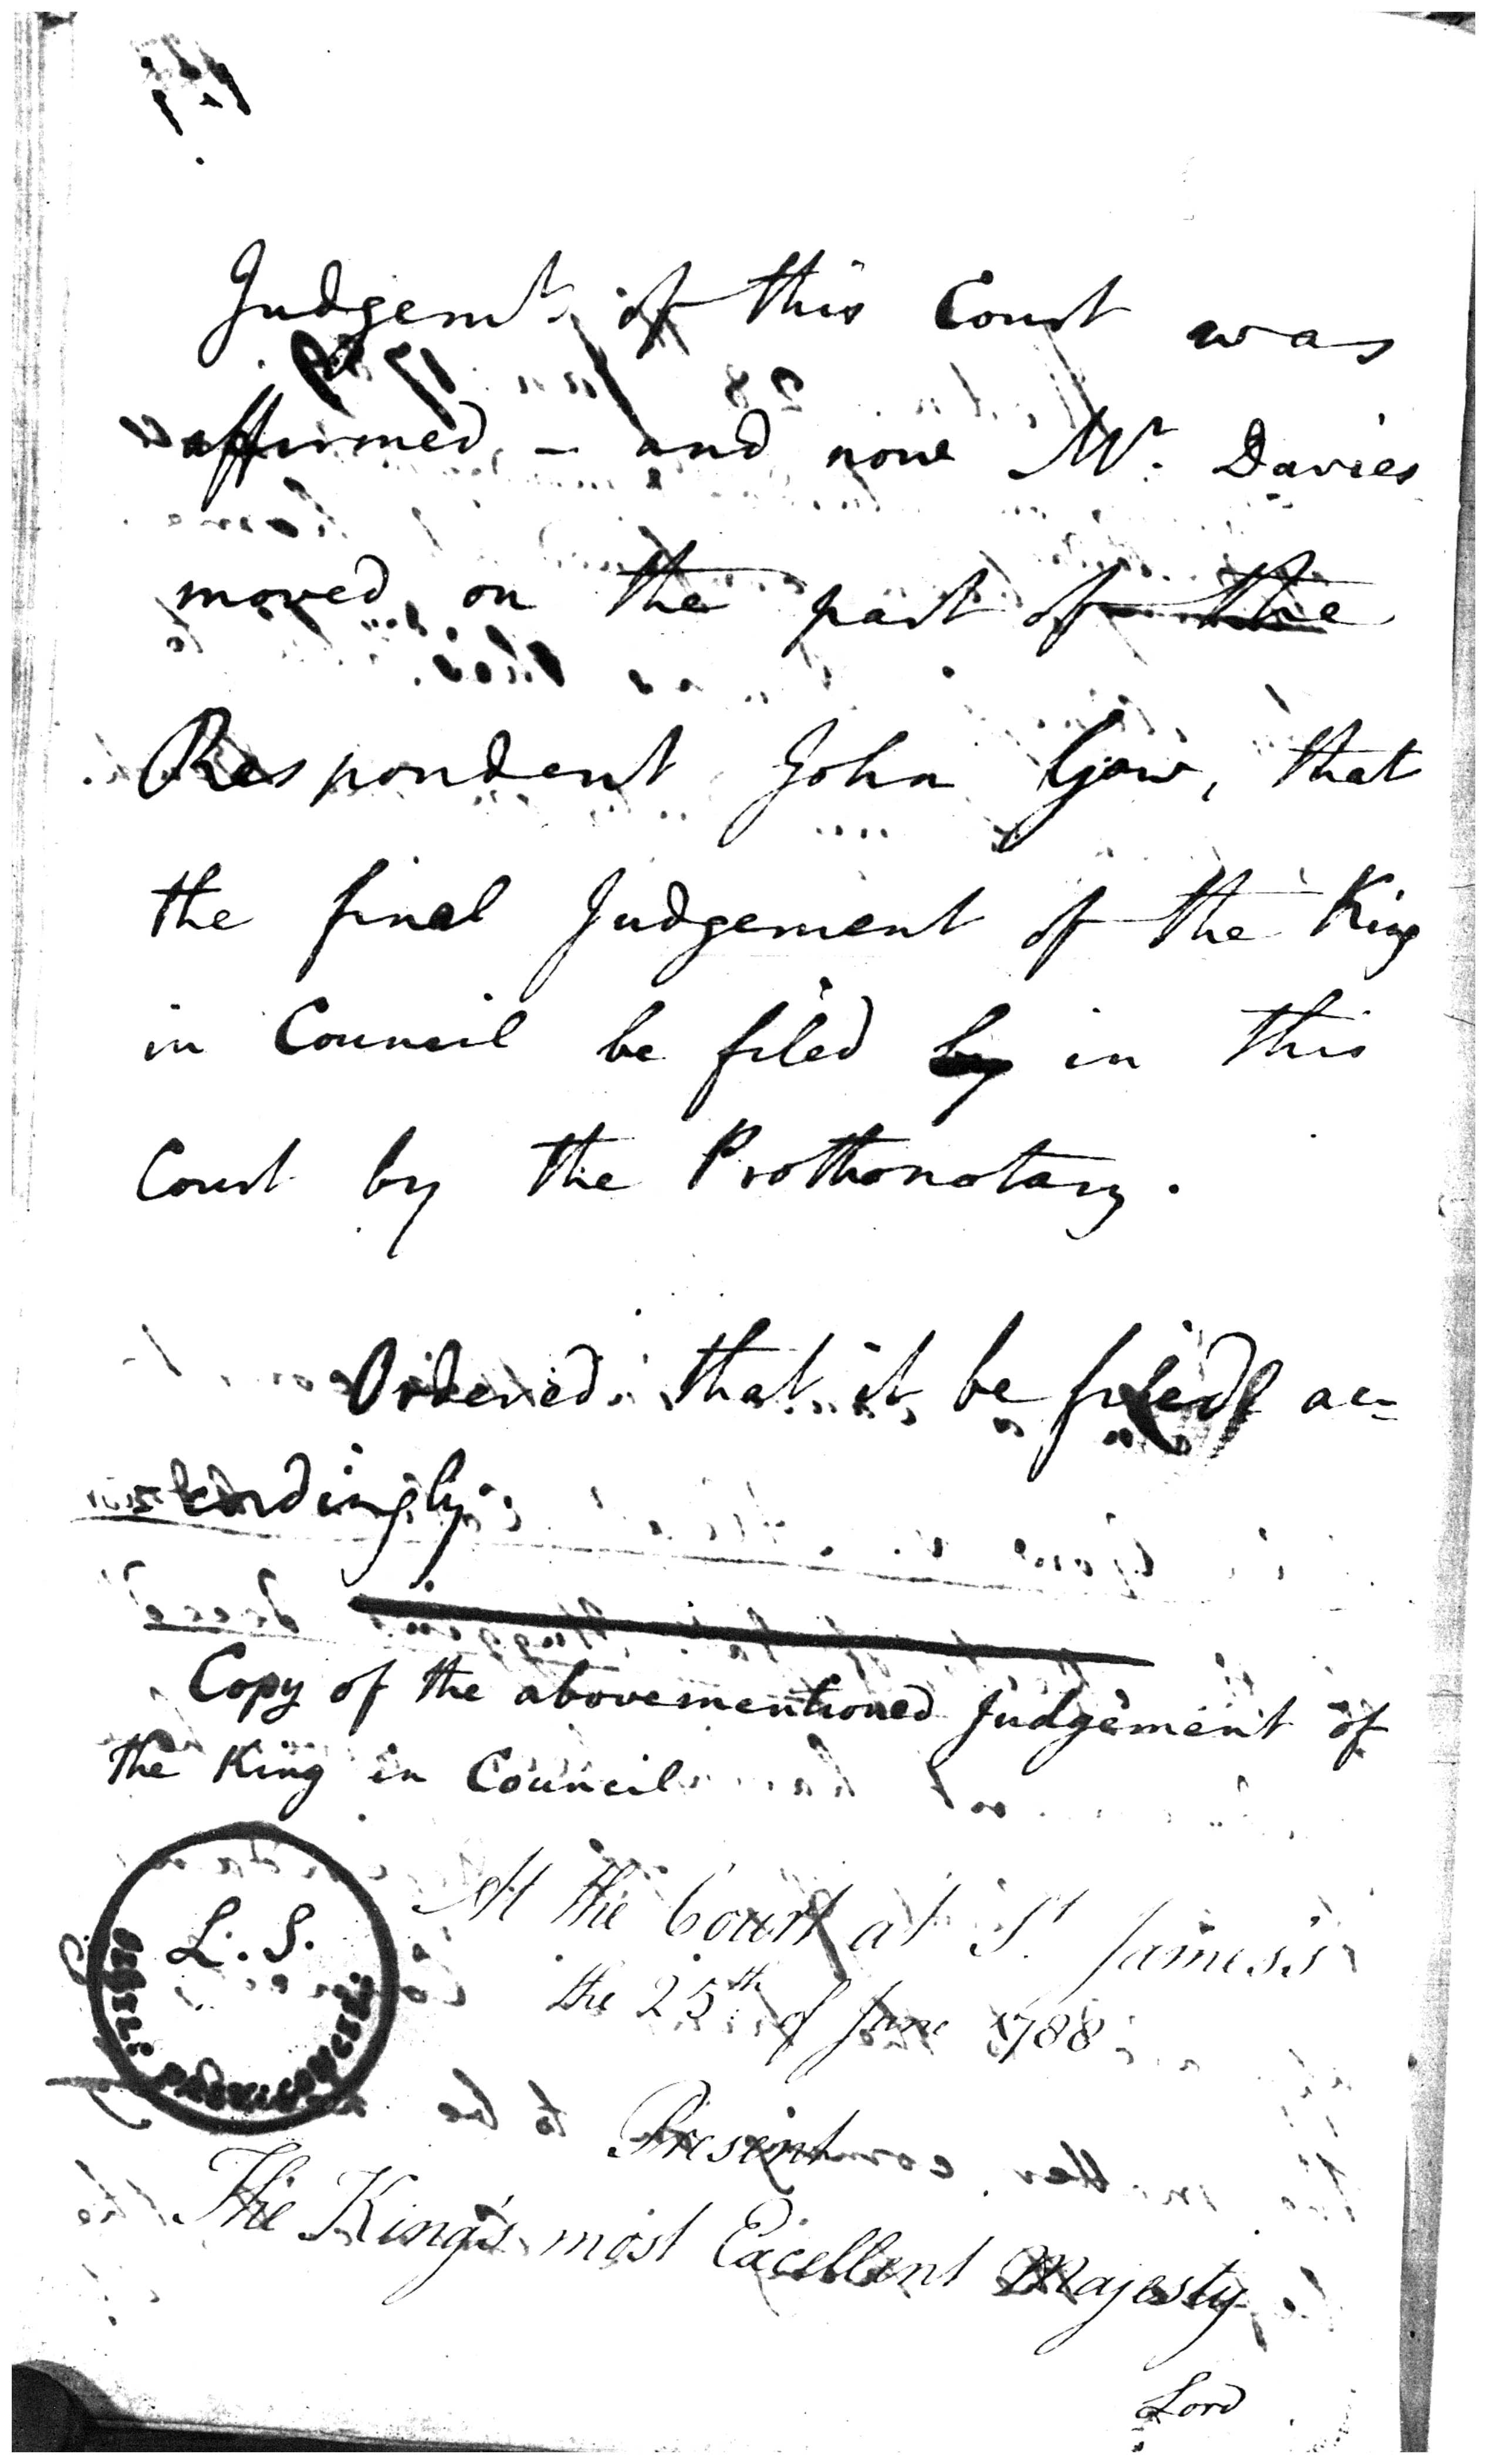 Judgemt. of this Court was
affirmed, - and now Mr. Davies
moved on the part of the
Respondent John Gow, that
the final Judgement of the King
in Council be filed by in this
Court by the Prothonotary.
Ordered that it be filed ac=
=cordingly.
Copy of the abovementioned Judgement of
the King in Council
L. S.
At the Court at St. James's
the 25th of June 1788
Present
The King's most Excellent Majesty
Lord